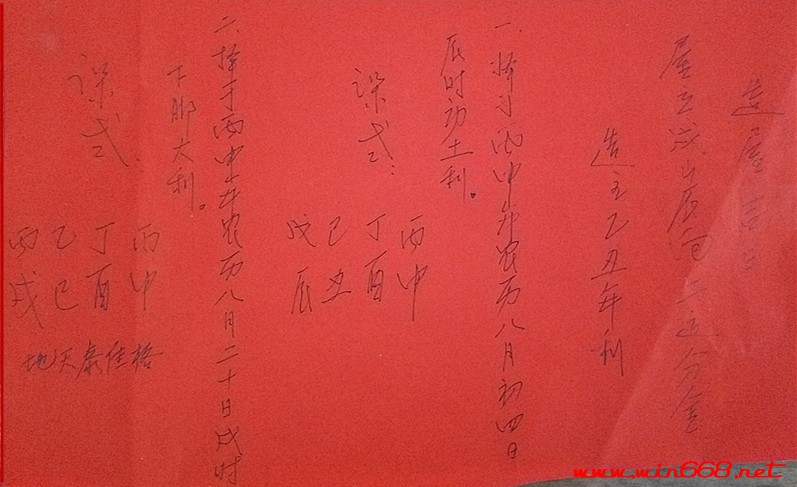 造屋吉日
屋立戌山辰向 运分金
造主乙丑年利
一.择于丙申年农历八月初四日
辰时动土利。
课式:
丙申
丁酉
己丑
戊辰
二.择于丙申年农历八月二十日戌时
下脚大利。
课式.
丙申
丁酉
乙巳
丙戌
地天泰佳格
www.win668.net